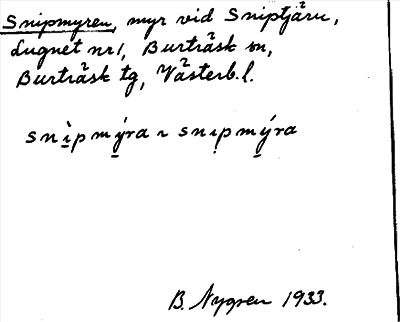 Snipmyren, myr vid Sniptjärn,
Lugnet nr 1, Burträsk sn,
Burträsk tg, Västerb. l.
snìpmýra ~ snipmýra
B. Nygren 1933.